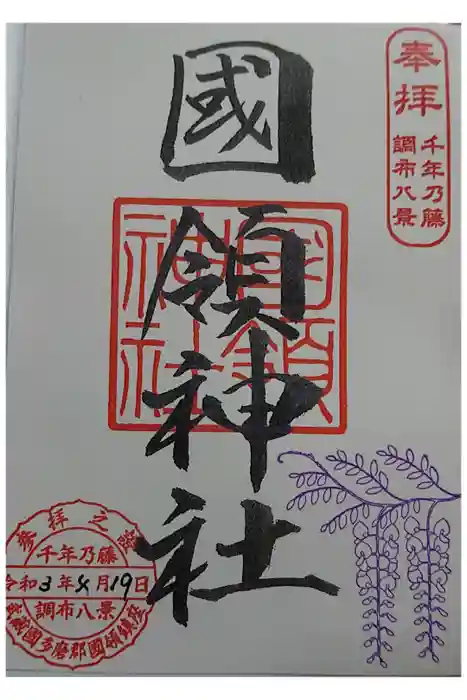 奉拝
千年乃藤
調布八景
國領神社
國領
神社
参拝之證
千年乃藤
令和3年4月19日
調布八景
武蔵國多磨郡國領鎮座